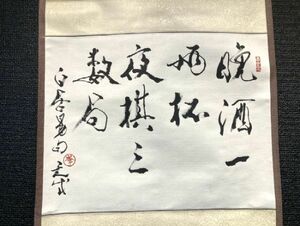 晚酒一
两杯
夜棋三
数局
白居易句